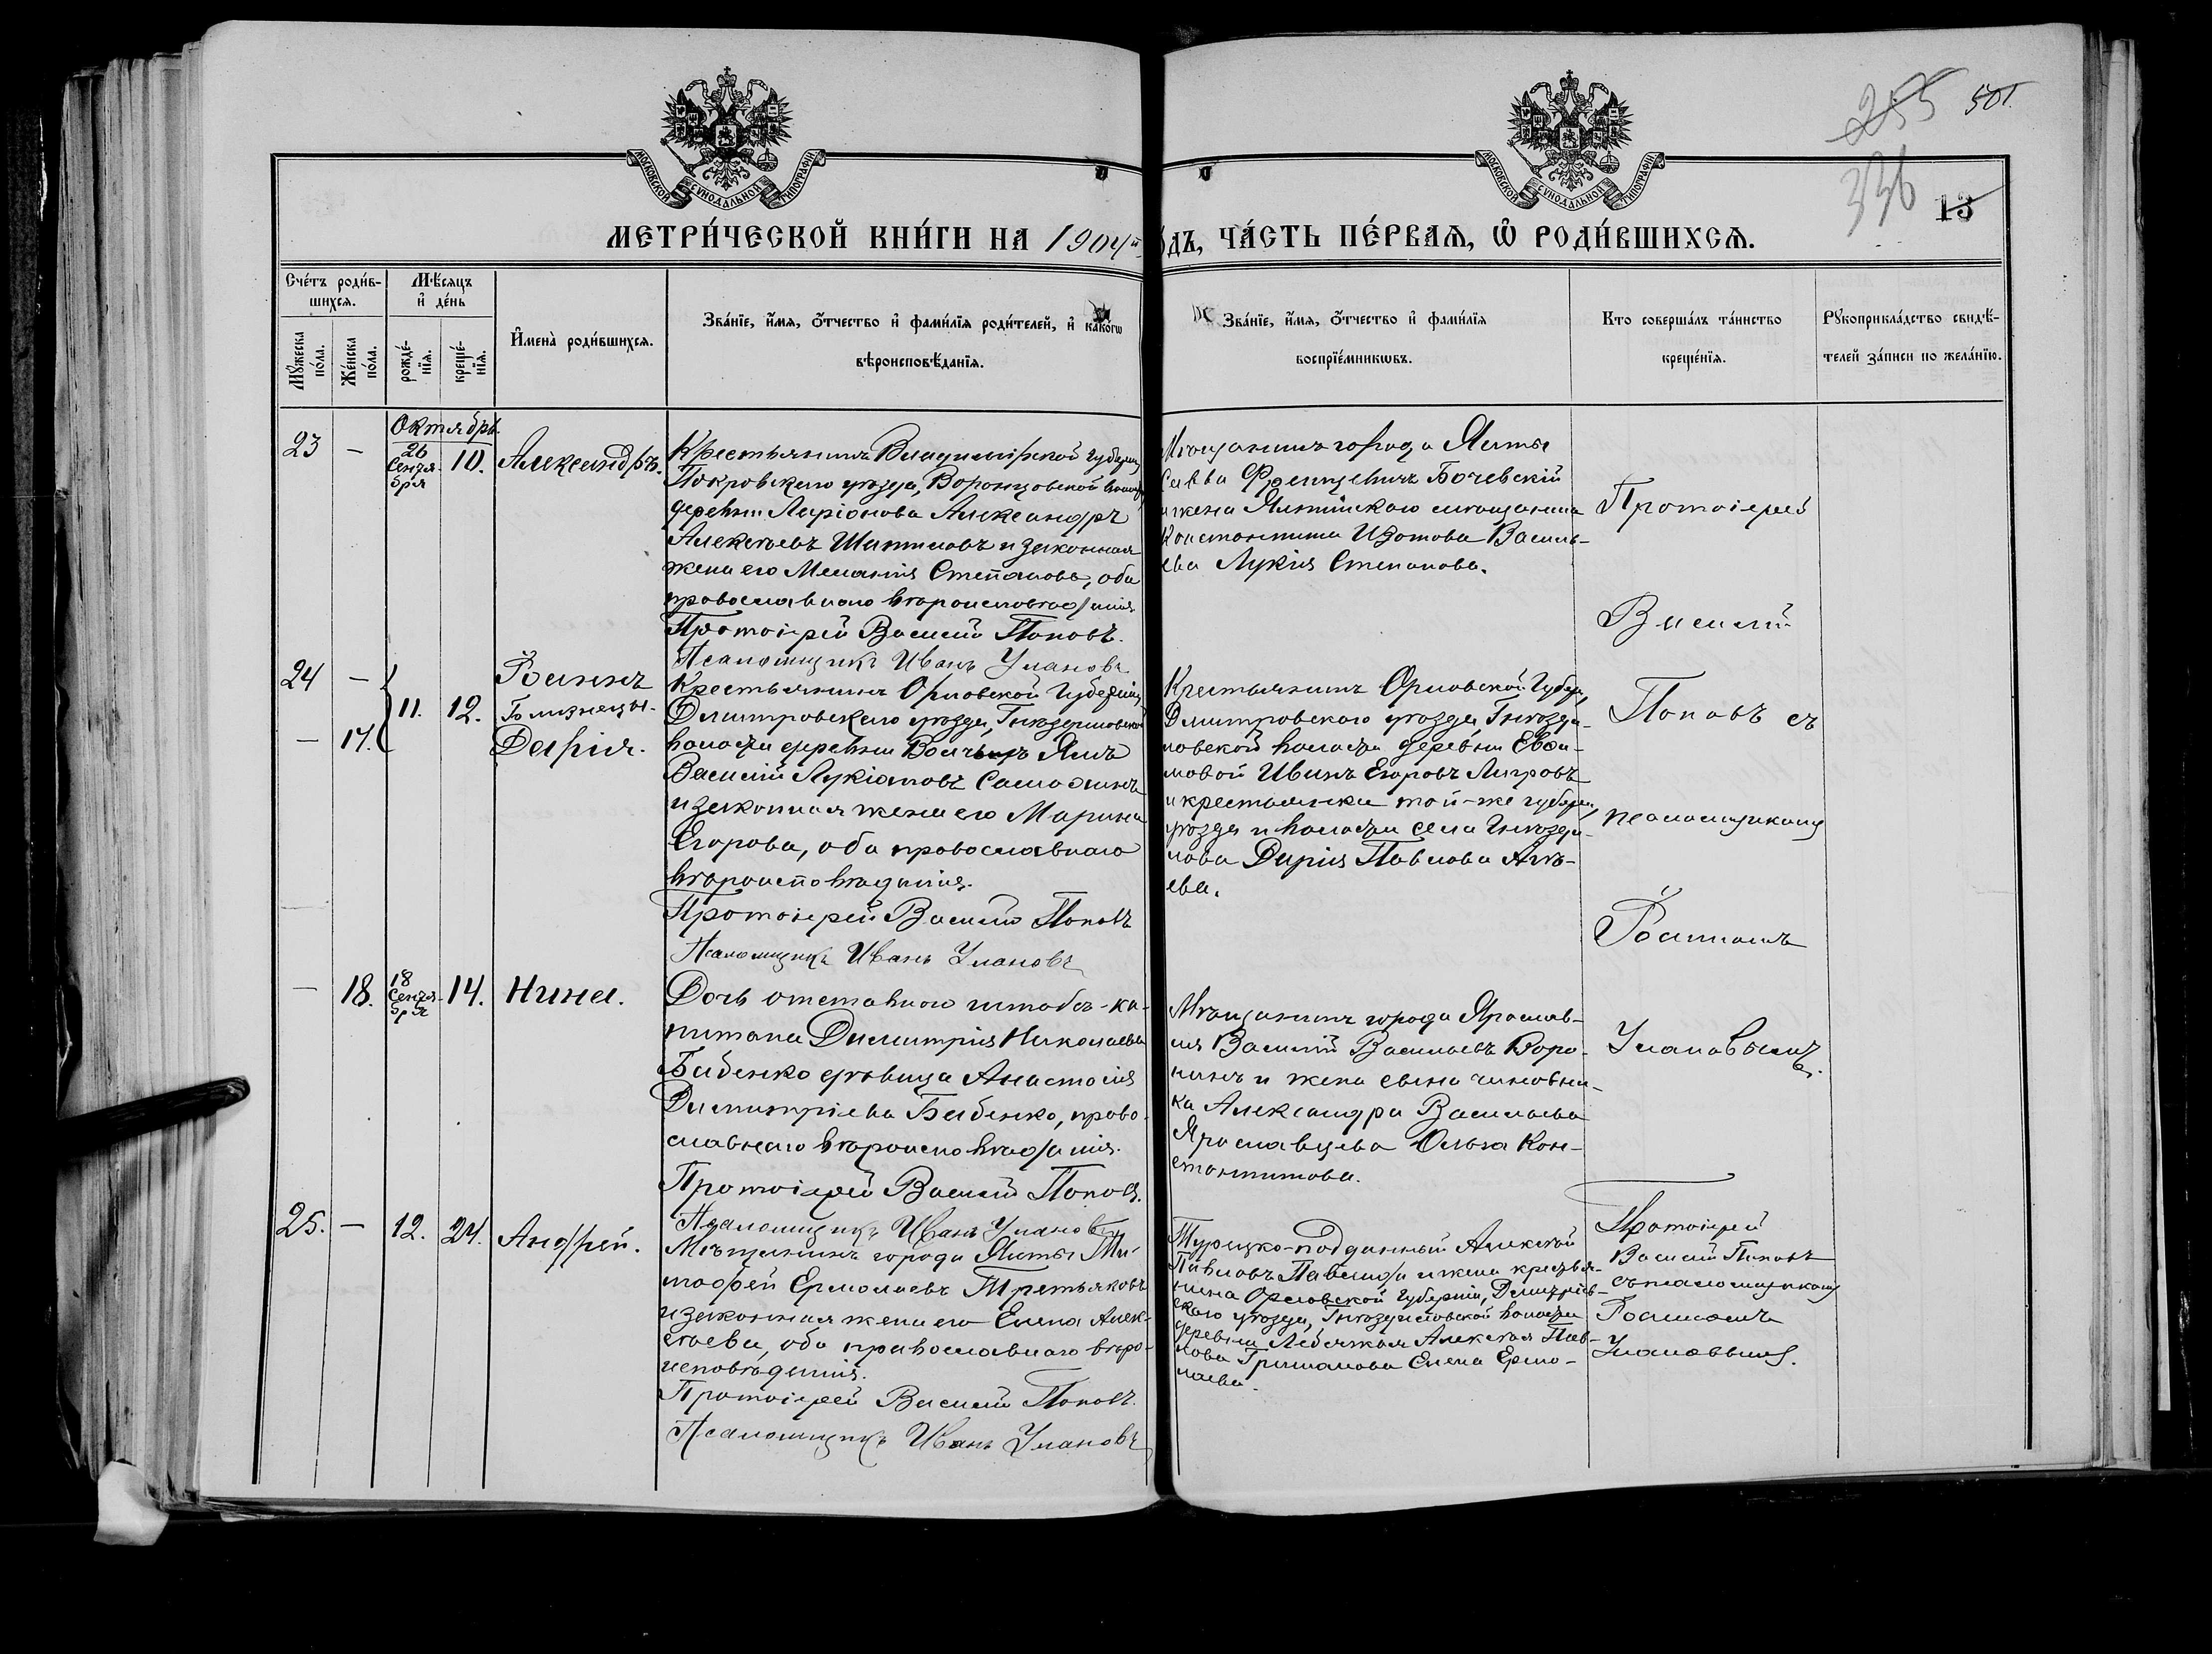 255 501
336
13
МОСКОВСКОЙ СѴНОДАЛЬНОЙ ТИПОГРАФІИ
МОСКОВСКОЙ СѴНОДАЛЬНОЙ ТИПОГРАФІИ
МЕТРИ́ЧЕСКОЙ КНИ́ГИ НА 1904й
ДЪ, ЧА́СТЬ ПЕ́РВАѦ, Ѡ҆ РОДИ́ВШИХСѦ.
Сче́тъ роди́в-
шихсѧ.
Мꙋжеска по́ла.
Же́нска по́ла.
Мѣ́сѧцъ и҆ де́нь
рожде́-нїѧ.
креще́-нїѧ.
И҆мена̀ роди́вшихсѧ.
Зва́нїе, и҆́мѧ, ѻ҆́тчество и҆ фами́лїѧ роди́телей, и҆ како́гѡ
вѣроисповѣ́данїѧ.
Зва́нїе, и҆́мѧ, ѻ҆́тчество и҆ фами́лїѧ
воспрїе́мникѡвъ.
Кто соверша́лъ та́инство
креще́нїѧ.
Рꙋкоприкла́дство свидѣ́-
телей за́писи по жела́нїю.
Октябрь
23 — 26 Сентя-бря 10. Александръ.
Крестьянинъ Владимірской губерніи
Покровскаго уѣзда, Воронцовской волости
деревни Ларіонова Александръ
Алексѣевъ и законная
жена его Меланія Степанова, оба
православнаго вѣроисповѣданія.
Протоіерей Василій Поповъ.
Псаломщикъ Иванъ Улановъ
Мѣщанинъ города Ялты
Савва Бочевскій
и жена Ялтинскаго мѣщанина
Константина Изотова Василь-
ева Лукія Степанова.
Протоіерей
Василій
Поповъ съ
псаломщикомъ
Іоанномъ
Улановымъ.
24 — Іоаннъ
11. 12. Близнецы.
— 17. Дарія.
Крестьянинъ Орловской Губерніи,
Дмитровскаго уѣзда, Гнѣздиловской
волости деревни Волчьихъ Ямъ
Василій Лукіановъ Самохинъ
и законная жена его Марина
Егорова, оба православнаго
вѣроисповѣданія.
Протоіерей Василій Поповъ
Псаломщикъ Иванъ Улановъ
Крестьянинъ Орловской Губерн,
Дмитровскаго уѣзда, Гнѣзди-
ловской волости деревни Евла-
мовой Иванъ Егоровъ
и крестьянка той-же губерніи,
уѣзда и волости села Гнѣзди-
лова Дарія Павлова
ева.
— 18. 18 Сентя-бря 14. Нина.
Дочь отставного штабсъ-ка-
питана Димитрія Николаева
Бабенко дѣвица Анастасія
Димитріева Бабенко, право-
славнаго вѣроисповѣданія.
Протоіерей Василій Поповъ.
Псаломщикъ Иванъ Улановъ
Мѣщанинъ города Ярослав-
ля Василій Васильевъ Воро-
нинъ и жена сына чиновни-
ка Александра Васильева
Ярославцева Ольга Кон-
стантинова.
25. — 12. 24. Андрей.
Мѣщанинъ города Ялты Ти-
мофей Ермолаевъ Третьяковъ
и законная жена его Елена Алек-
сѣева, оба православнаго вѣро-
исповѣданія.
Протоіерей Василій Поповъ.
Псаломщикъ Иванъ Улановъ
Турецко-подданный Алексѣй
Павловъ и жена крестья-
нина Орловской Губерніи, Дмитров-
скаго уѣзда, Гнѣздиловской волости
деревни Алексѣя Пав-
лова Гришакова Елена Ермо-
лаева.
Протоіерей
Василій Поповъ
съ псаломщикомъ
Іоанномъ
Улановымъ.